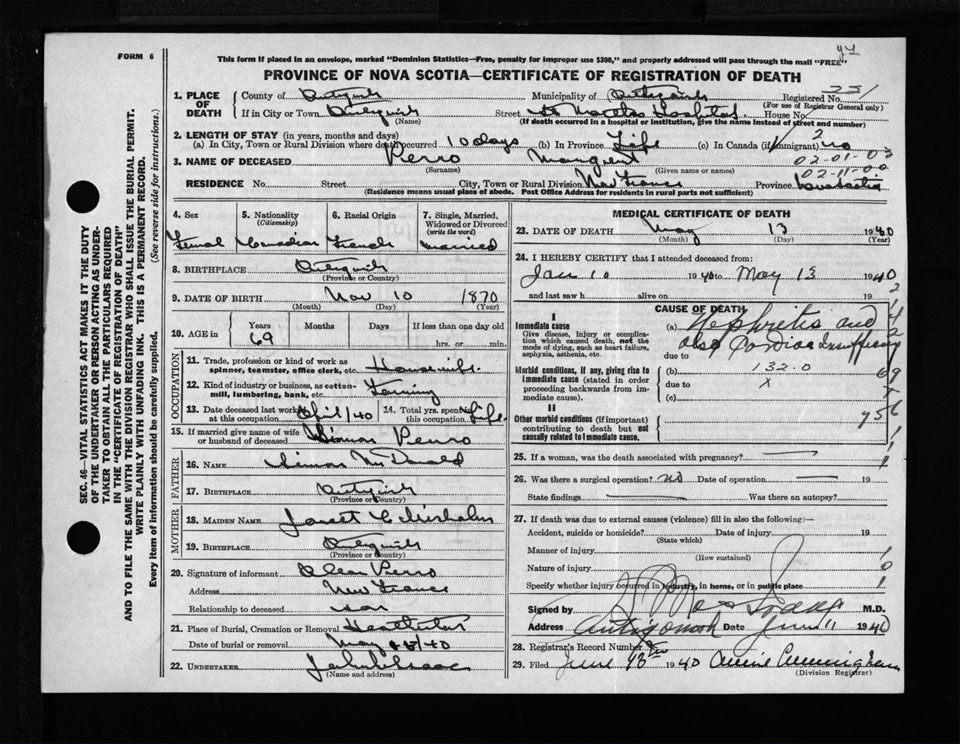 FORM 6
This form if placed in an envelope, marked "Dominion Statistics—Free, penalty for improper use $300," and properly addressed will pass through the mail "FREE"
PROVINCE OF NOVA SCOTIA—CERTIFICATE OF REGISTRATION OF DEATH
1. PLACE OF DEATH
County of
Municipality of
Registered No. 221
(For use of Registrar General only)
If in City or Town
(Name)
Street St Hospital House No.
(If death occurred in a hospital or institution, give the name instead of street and number)
2. LENGTH OF STAY (in years, months and days)
(a) In City, Town or Rural Division where death occurred 10 days (b) In Province Life (c) In Canada (if immigrant) no
3. NAME OF DECEASED Perro
(Surname) (Given name or names)
02-01-03
02-11-00
RESIDENCE No. Street City, Town or Rural Division New France Province Nova Scotia
(Residence means usual place of abode. Post Office Address for residents in rural parts not sufficient)
4. Sex
5. Nationality (Citizenship)
6. Racial Origin
7. Single, Married, Widowed or Divorced (write the word)
Femal Canadian French Married
8. BIRTHPLACE
(Province or Country)
9. DATE OF BIRTH Nov 10 1870
(Month) (Day) (Year)
10. AGE in Years Months Days If less than one day old
69 hrs. or min.
OCCUPATION
11. Trade, profession or kind of work as spinner, teamster, office clerk, etc. Housewife
12. Kind of industry or business, as cotton-mill, lumbering, bank, etc. Farming
13. Date deceased last worked at this occupation April/40 14. Total yrs. spent in this occupation Life
15. If married give name of wife or husband of deceased Simon Perro
FATHER
16. NAME Simon McDonald
17. BIRTHPLACE
(Province or Country)
MOTHER
18. MAIDEN NAME Janet Chisholm
19. BIRTHPLACE
(Province or Country)
20. Signature of informant Perro
Address New France
Relationship to deceased son
21. Place of Burial, Cremation or Removal Heatherton
Date of burial or removal May /40
22. UNDERTAKER
(Name and address)
MEDICAL CERTIFICATE OF DEATH
23. DATE OF DEATH May 13 1940
(Month) (Day) (Year)
24. I HEREBY CERTIFY that I attended deceased from:
Jan 10 1940 to May 13 1940
and last saw h alive on 19
CAUSE OF DEATH
I
Immediate cause
Give disease, injury or complication which caused death, not the mode of dying, such as heart failure, asphyxia, asthenia, etc.
(a) Nephritis and
also Cardiac Insufficiency
due to
Morbid conditions, if any, giving rise to immediate cause (stated in order proceeding backwards from immediate cause).
(b) 132.0
due to X
(c)
II
Other morbid conditions (if important) contributing to death but not causally related to immediate cause.
956
25. If a woman, was the death associated with pregnancy?
26. Was there a surgical operation? no Date of operation
State findings Was there an autopsy?
27. If death was due to external causes (violence) fill in also the following:—
Accident, suicide or homicide? Date of injury 19
(State which)
Manner of injury
(How sustained)
Nature of injury
Specify whether injury occurred in industry, in home, or in public place
Signed by M.D.
Address Antigonish Date June 11 1940
28. Registrar's Record Number
29. Filed June 1940 Annie Cunningham
(Division Registrar)
SEC. 46—VITAL STATISTICS ACT MAKES IT THE DUTY OF THE UNDERTAKER OR PERSON ACTING AS UNDERTAKER TO OBTAIN ALL THE PARTICULARS REQUIRED IN THE "CERTIFICATE OF REGISTRATION OF DEATH" AND TO FILE THE SAME WITH THE DIVISION REGISTRAR WHO SHALL ISSUE THE BURIAL PERMIT.
WRITE PLAINLY WITH UNFADING INK. THIS IS A PERMANENT RECORD.
Every item of information should be carefully supplied. (See reverse side for instructions.)